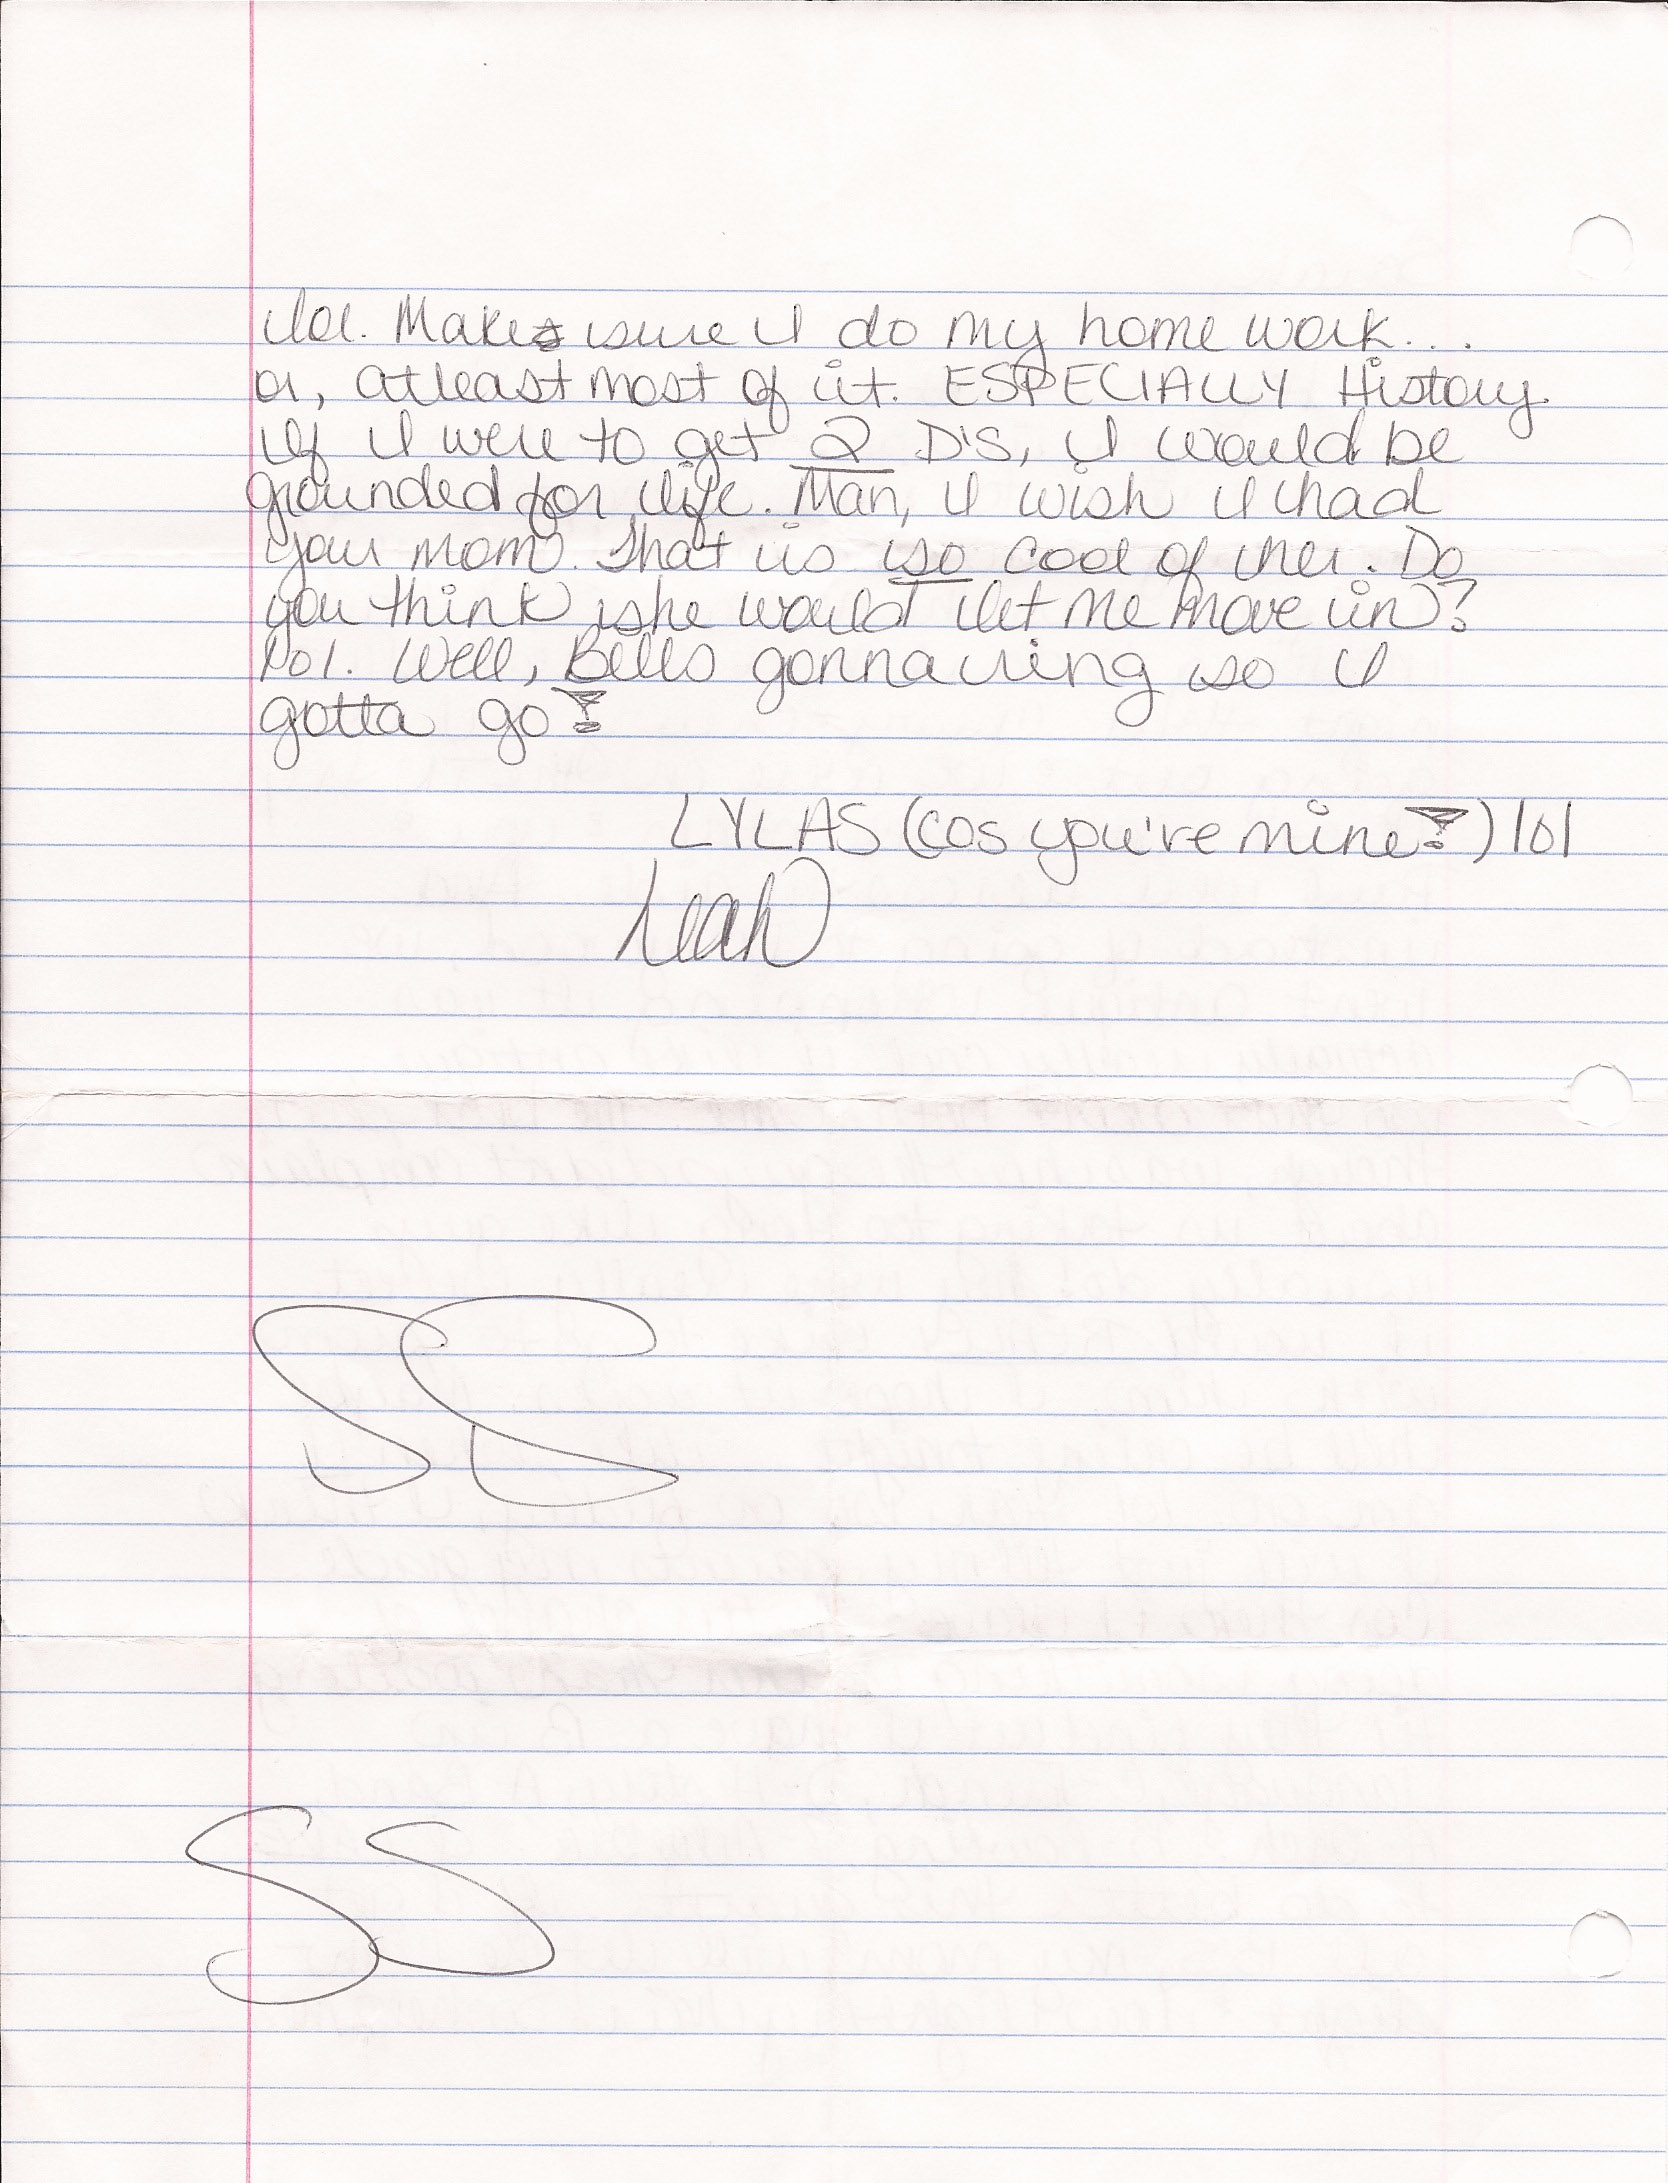 lol. Make sure I do my home work...
or, atleast most of it. ESPECIALLY History.
If I were to get 2 D'S, I would be
grounded for life. Man, I wish I had
your mom. That is so cool of her. Do
you think she would let me move in?
lol. Well, Bells gonna ring so I
gotta go!
LYLAS (cos you're mine!) lol
Leah
SS
SS